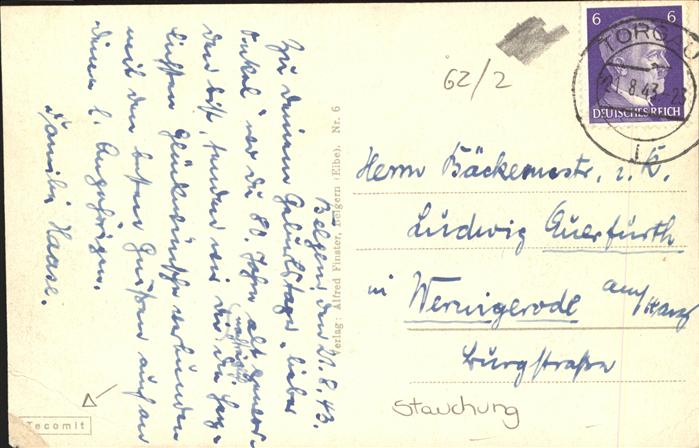 Belgern, den 21.8.43.
Zu deinem Geburtstage, lieber
Onkel, wo du 80 Jahr alt gewor-
den bist, senden wir dir die herz-
lichsten Glückwünsche verbunden
mit den besten Grüßen auch an
deine l. Angehörigen.
Familie Haase.
Verlag: Alfred Finster, Belgern (Elbe). Nr. 6
62/2
6 6
DEUTSCHES REICH
TORGAU
21.8.43
Herrn Bäckermstr. i. R.
Ludwig Auerfürth
in Wernigerode am Harz
Burgstraße
Stauchung
Tecomit